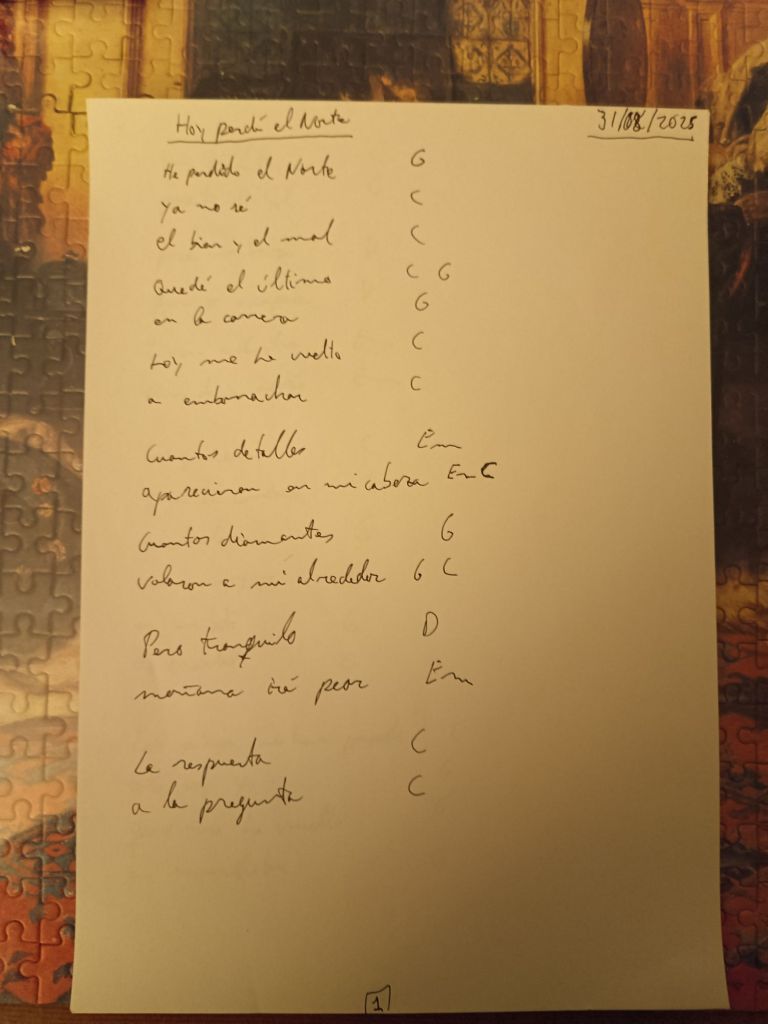 Hoy perdí el Norte 31/08/2025
He perdido el Norte G
ya no sé C
el bien y el mal C
Quedé el último C G
en la carrera G
hoy me he vuelto C
a emborrachar C
Cuantos detalles Em
aparecieron en mi cabeza Em C
Cuantos diamantes G
volaron a mi alrededor G C
Pero tranquilo D
mañana irá peor Em
La respuesta C
a la pregunta C
1